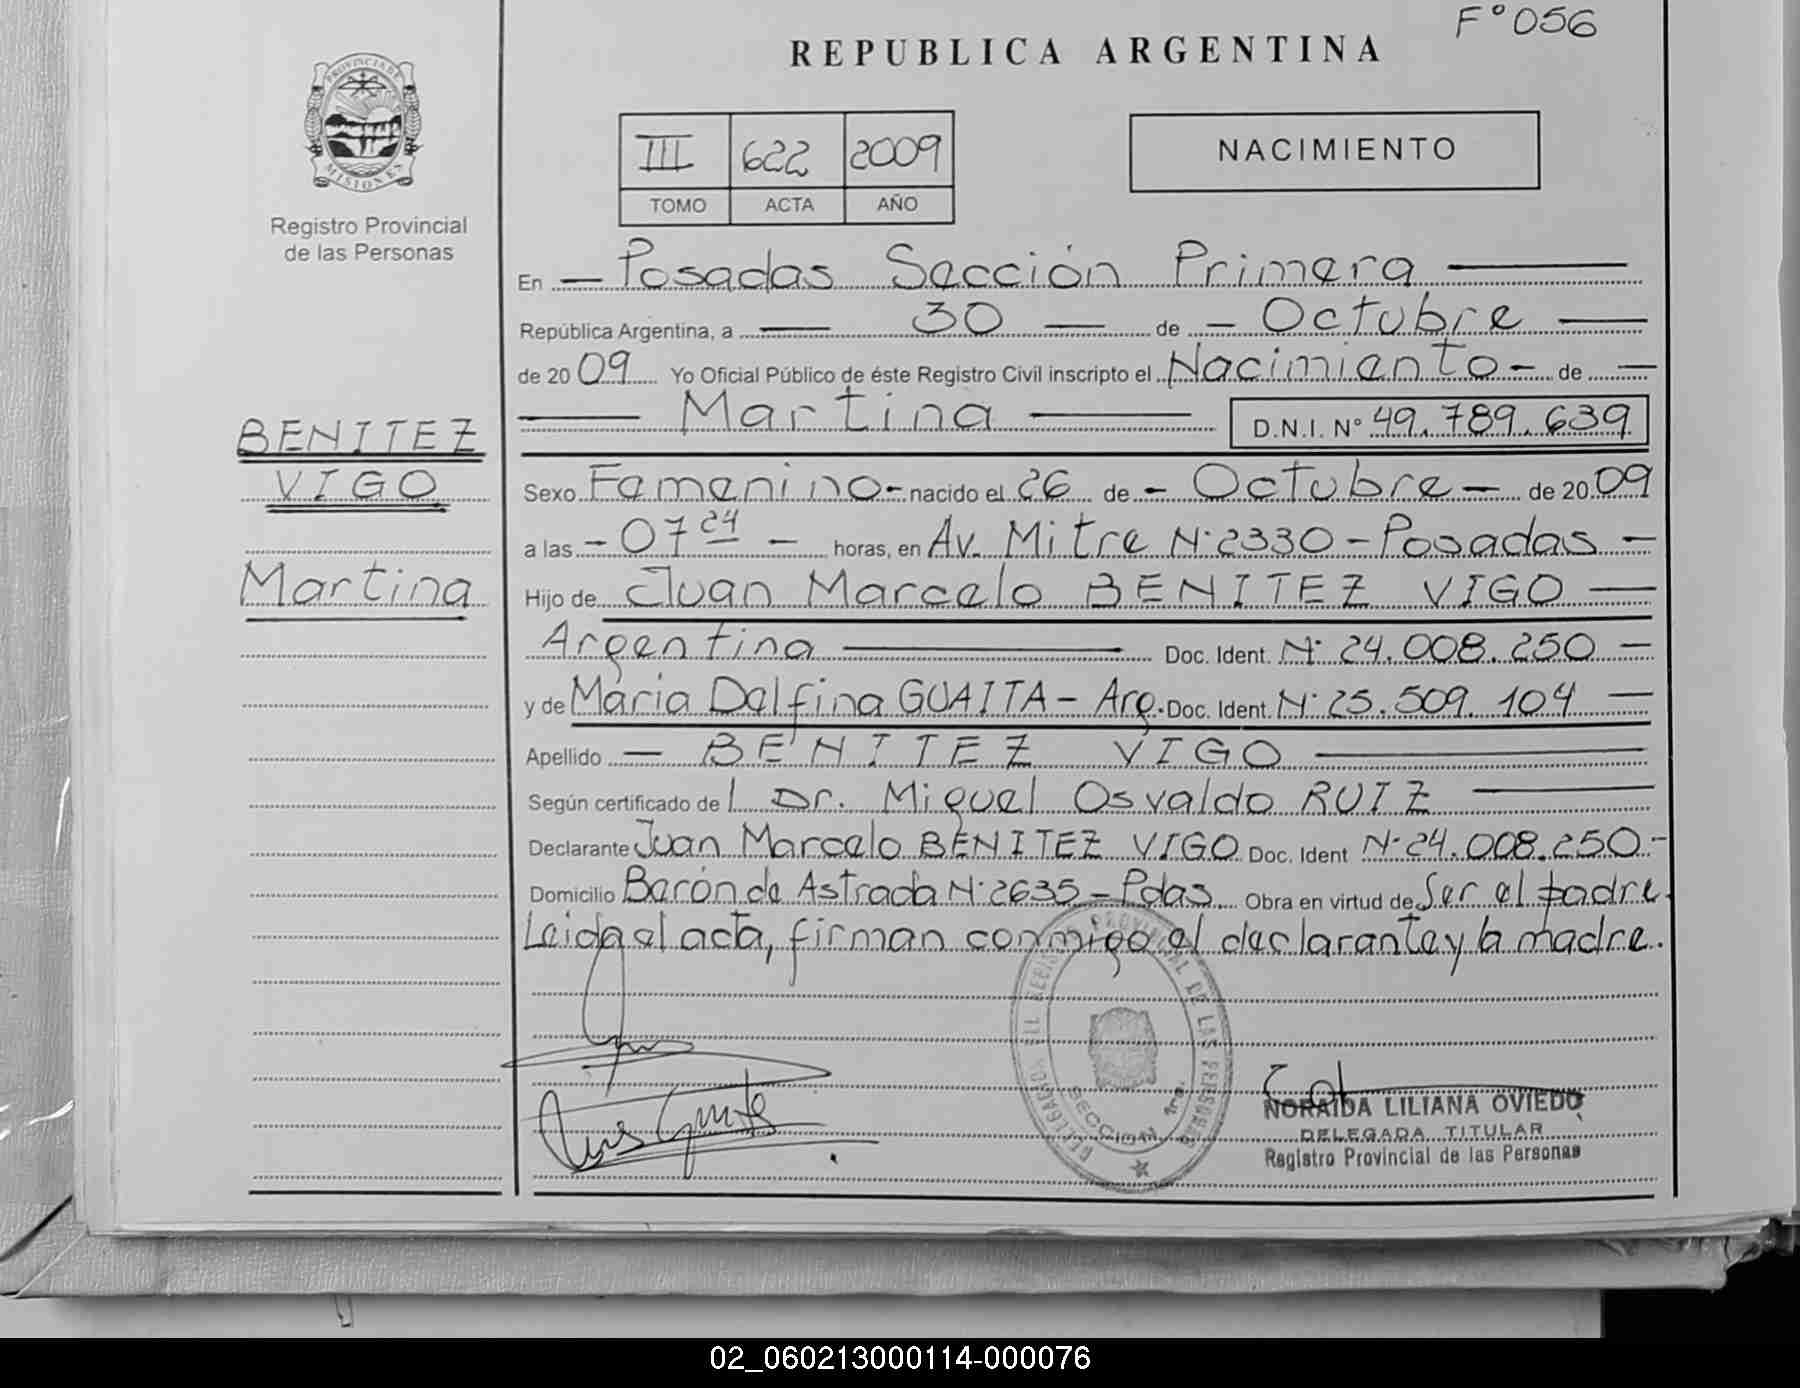 F° 056
REPUBLICA ARGENTINA
PROVINCIA DE
MISIONES
Registro Provincial
de las Personas
III 622 2009
TOMO ACTA AÑO
NACIMIENTO
En — Posadas Sección Primera —
República Argentina, a — 30 — de — Octubre —
de 20 09 Yo Oficial Público de éste Registro Civil inscripto el Nacimiento - de —
— Martina — D.N.I. N° 49.789.639
BENITEZ
VIGO
Martina
Sexo Femenino - nacido el 26 de - Octubre - de 20 09
a las - 07 24 - horas, en Av. Mitre N° 2330 - Posadas -
Hijo de Juan Marcelo BENITEZ VIGO —
Argentina — Doc. Ident. N° 24.008.250 —
y de María Delfina GUAITA - Arg. Doc. Ident. N° 25.509.104 —
Apellido — BENITEZ VIGO —
Según certificado de l Dr. Miguel Osvaldo RUIZ —
Declarante Juan Marcelo BENITEZ VIGO Doc. Ident N° 24.008.250 -
Domicilio Barón de Astrada N° 2635 - Pdas. Obra en virtud de Ser el padre.
Leida el acta, firman conmigo el declarante y la madre.
PROVINCIAL DE LAS PERSONAS
SECCION 1ra.
NORAIDA LILIANA OVIEDO
DELEGADA TITULAR
Registro Provincial de las Personas
02_060213000114-000076